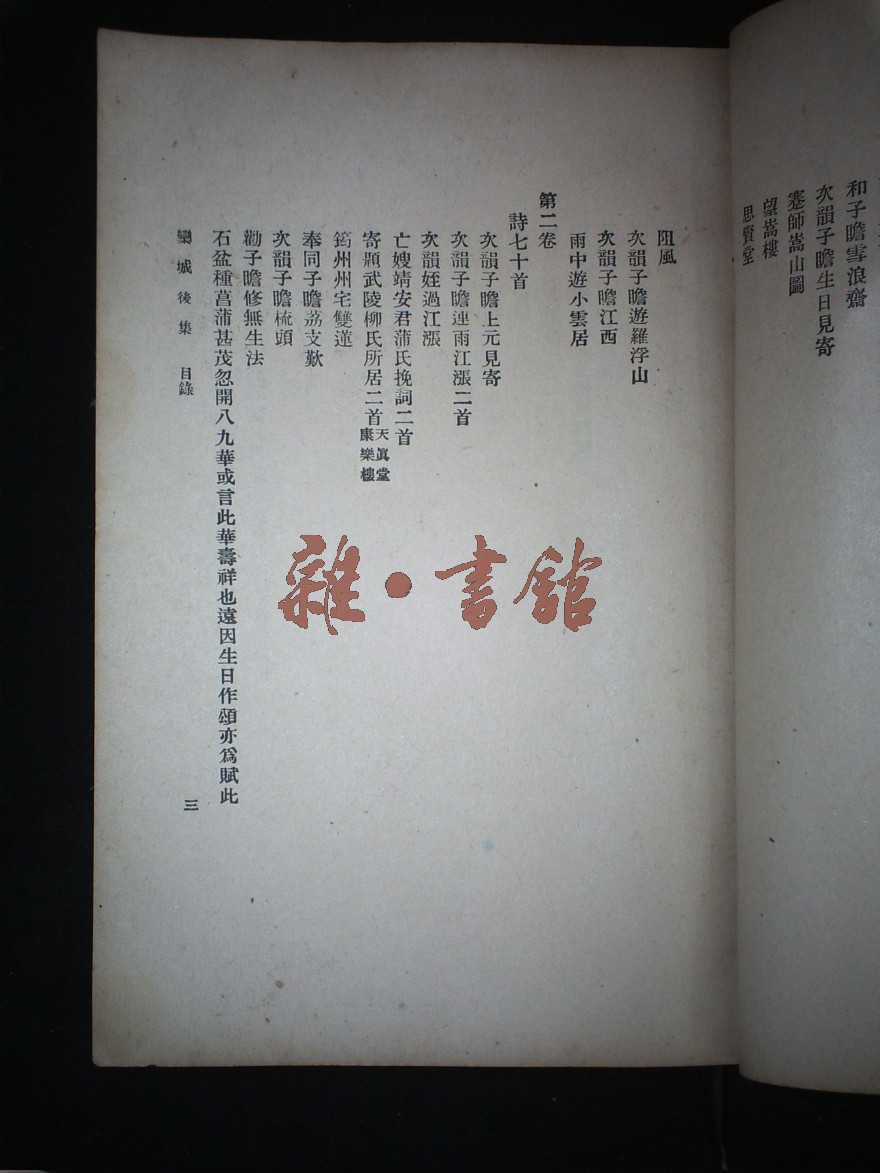 和子瞻雪浪齋
次韻子瞻生日見寄
蹇師嵩山圖
望嵩樓
思賢堂
阻風
次韻子瞻遊羅浮山
次韻子瞻江西
雨中遊小雲居
第二卷
詩七十首
次韻子瞻上元見寄
次韻子瞻連雨江漲二首
次韻姪過江漲
亡嫂靖安君蒲氏挽詞二首
寄題武陵柳氏所居二首天眞堂康樂樓
筠州州宅雙蓮
奉同子瞻荔支歎
次韻子瞻梳頭
勸子瞻修無生法
石盆種菖蒲甚茂忽開八九華或言此華壽祥也遠因生日作頌亦爲賦此
欒城後集 目錄 三
雜·書館